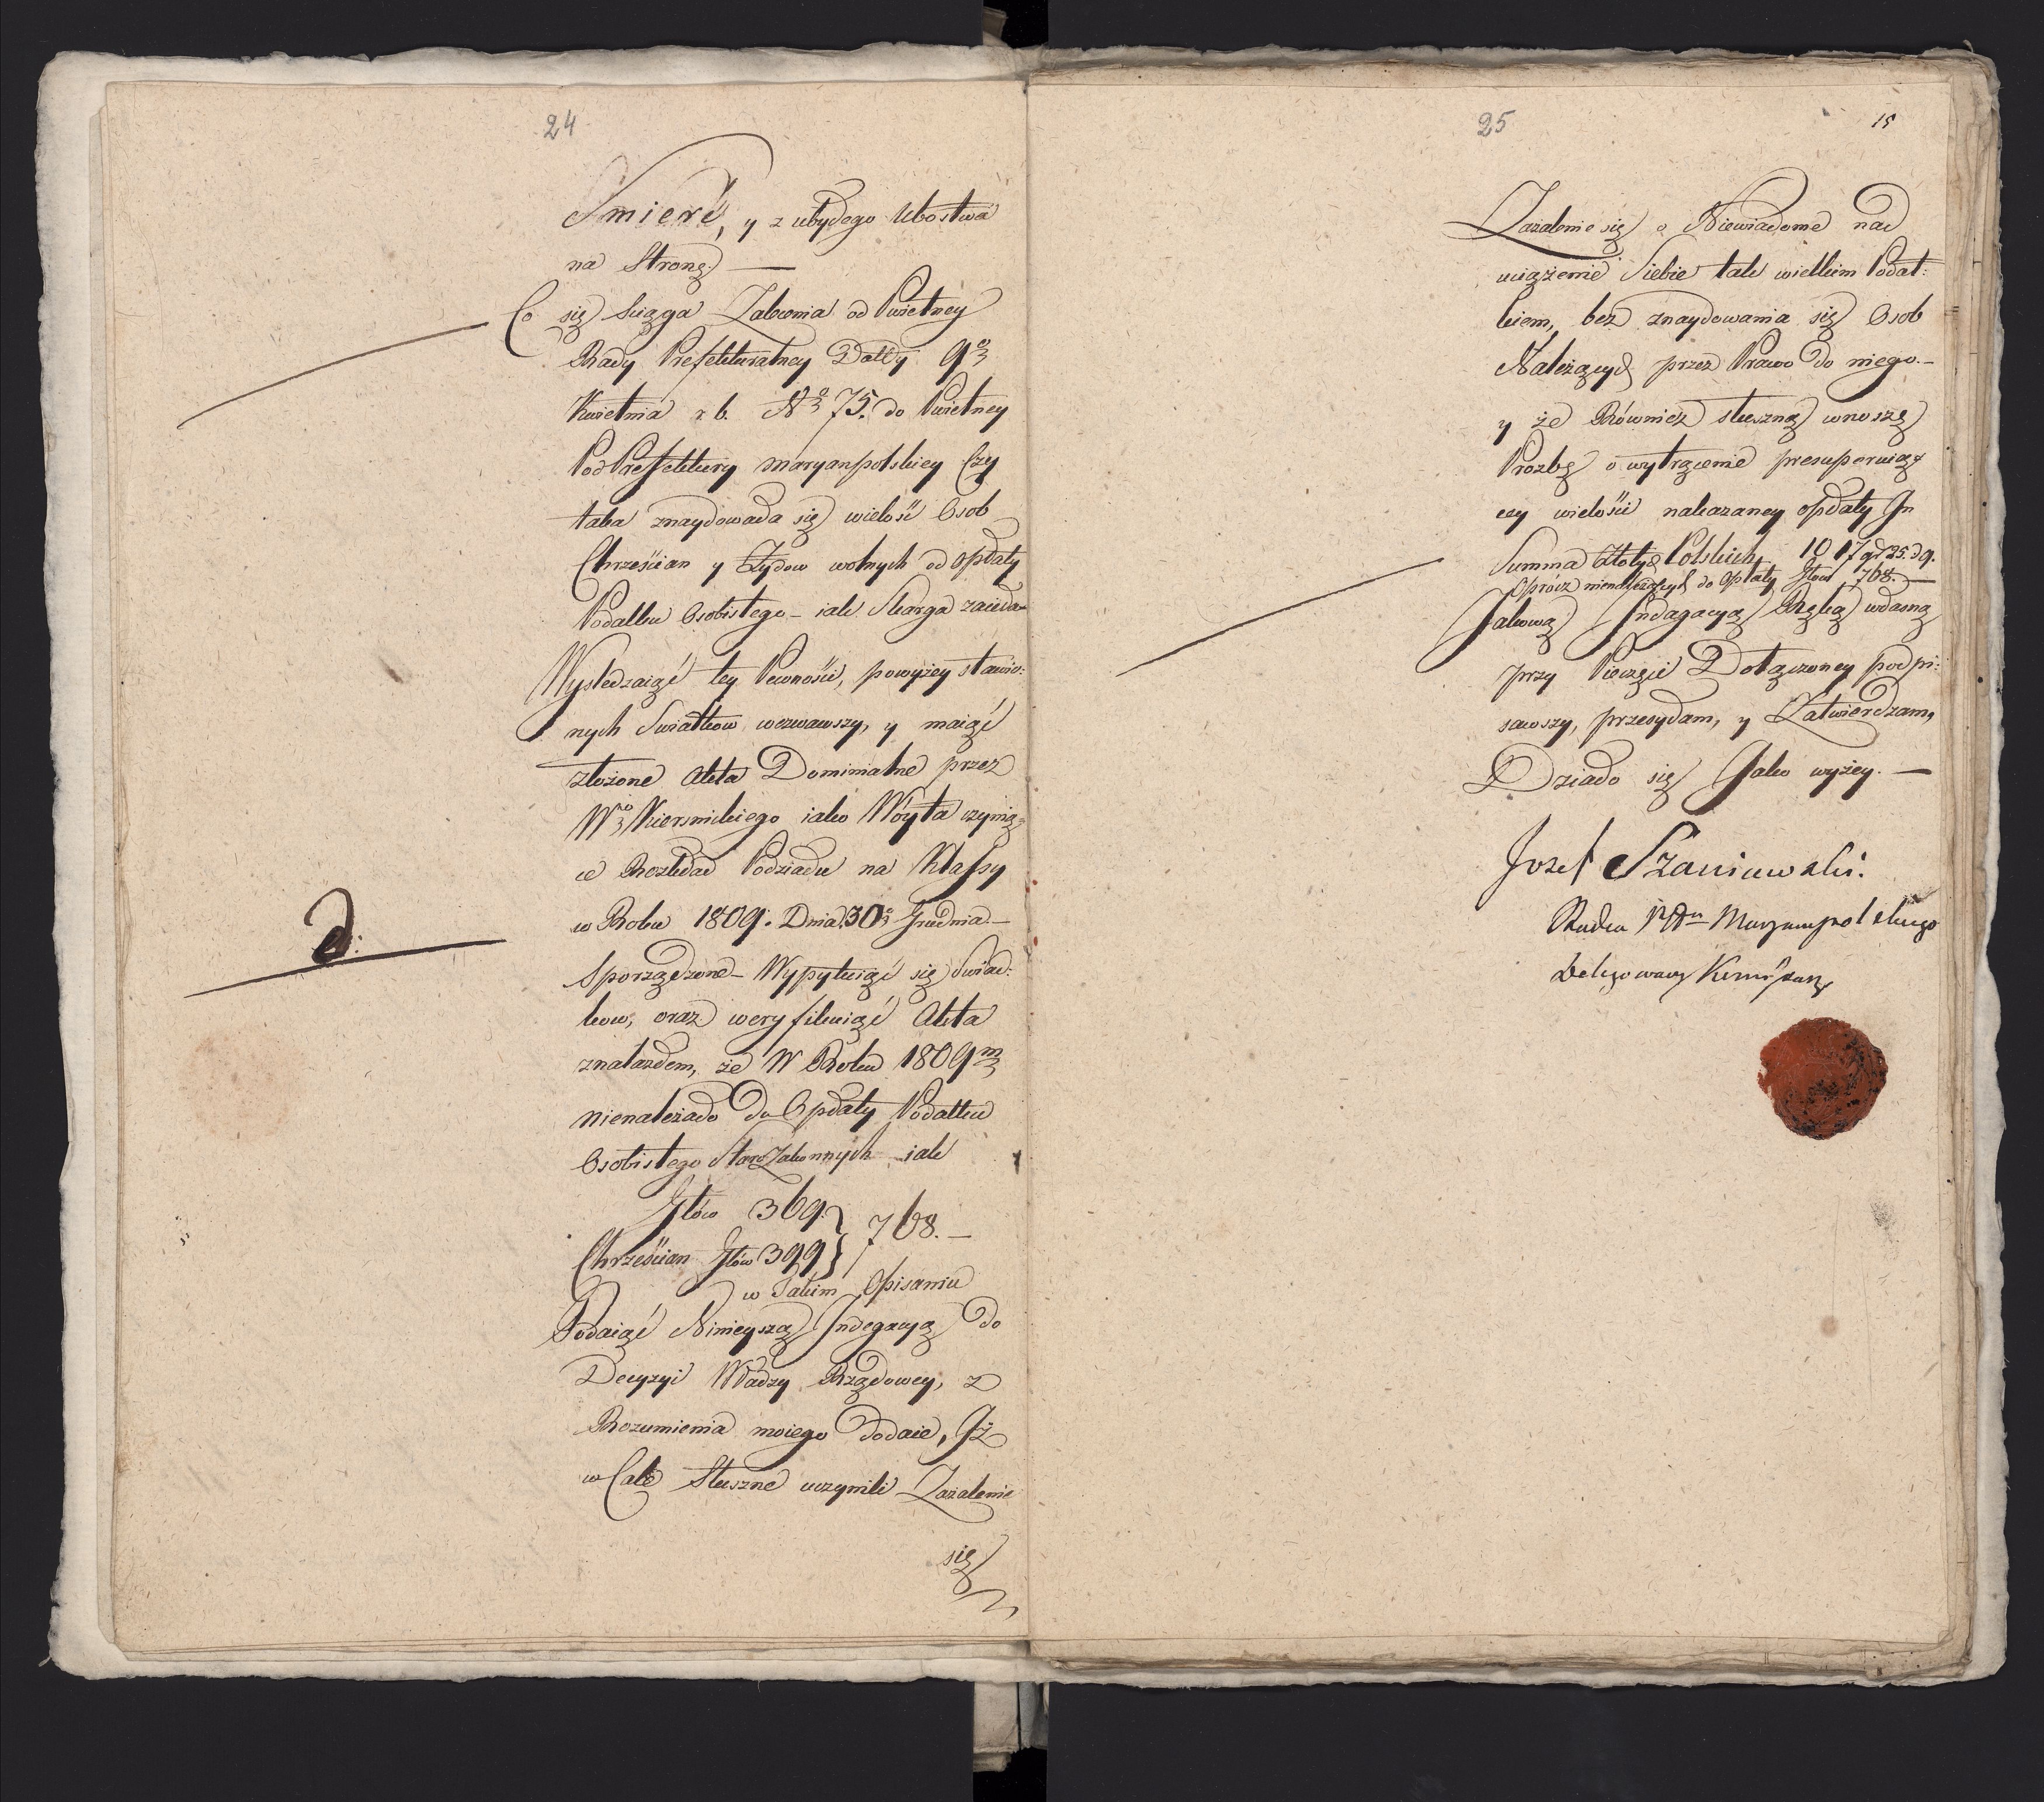 24
Smierć, y z ubyłego Ubostwa
na Stronę. —
Co się sciąga Zalecenia od Świetney
Rady Prefekturalney Datty 9º
Kwietnia r. b. Nº 75. do Świetney
PodPrefektury Maryanpolskiey Czy
taka znaydowała się wielość Osob
Chrześcian y Żydow wolnych od opłaty
Podatku Osobistego – iak Skarga zaięła
Wysledzaiąć tey Pewności, powyżey stawio:
nych Swiatkow wezwawszy, y maiąć
złożone Akta Dominialne przez
Wº Kiersnickiego iako Wóyta czynią
ce Rozkład Podziału na Klassy
w Roku 1809. Dnia 30º Grudnia. —
d:
Sporządzone – Wypytuiąć się Swiad:
kow, oraz weryfikuiąć Akta
znalazłem, że W Roku 1809m
nienależało do Opłaty Podatku
Osobistego StaroZakonnych iak
Głów 369.
Chrześcian Głów 399 } 768. —
w Takim Opisaniu
Podaiąć Ninieyszą Indegacyą do
Decyzyi Władzy Rządowey, z
Rozumienia moiego dodaie, Iż
w Cale Słuszne uczynili Zażalenie
się
25
15
Zażalenie się o Niewiadome nad
uciążenie Siebie tak wielkim Podat:
kiem, bez znaydowania się Osob
Należących przez Prawo do niego. –
y że Równiez słuszną wnoszę
Prozbę o wytrącenie presuponuią
cey wielości nakazaney opłaty In
Summa Złotych Polskich 1017 gr 25. d 9.
Oprócz nienależących do Opłaty Głow 768. —
Jakową Indagacyą Ręką własną
przy Pieczęci Dołączoney podpi:
sawszy, przesyłam, y Zatwierdzam,
Działo się Jako wyżey. —
Jozef Szaniawski.
Radca Pttu Maryampolskiego
Delegowany Kommissarz